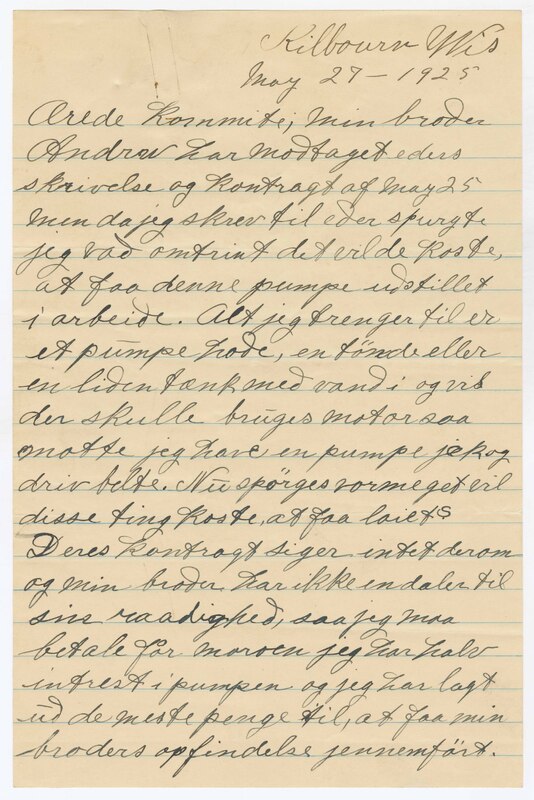 Kilbourn Wis
May 27 – 1925
Ærede Kommite; min broder
Andrew har modtaget eders
skrivelse og Kontragt af May 25
men da jeg skrev til eder spurgte
jeg vad omtrint det vilde koste,
at faa denne pumpe udstillet
i arbeide. Alt jeg trenger til er
et pumpe hode, en tönde eller
en liden tænk med vand i og vis
der skulle bruges motor saa
motte jeg have en pumpe jek og
driv belte. Nu spörges vor meget vil
disse ting koste, at faa leiets
Deres kontragt siger intet derom
og min broder har ikke en daler til
sin raadighed, saa jeg maa
betale for moroen jeg har halv
intrest i pumpen og jeg har lagt
ud de meste penge til, at faa min
broders opfindelse jennemfört.